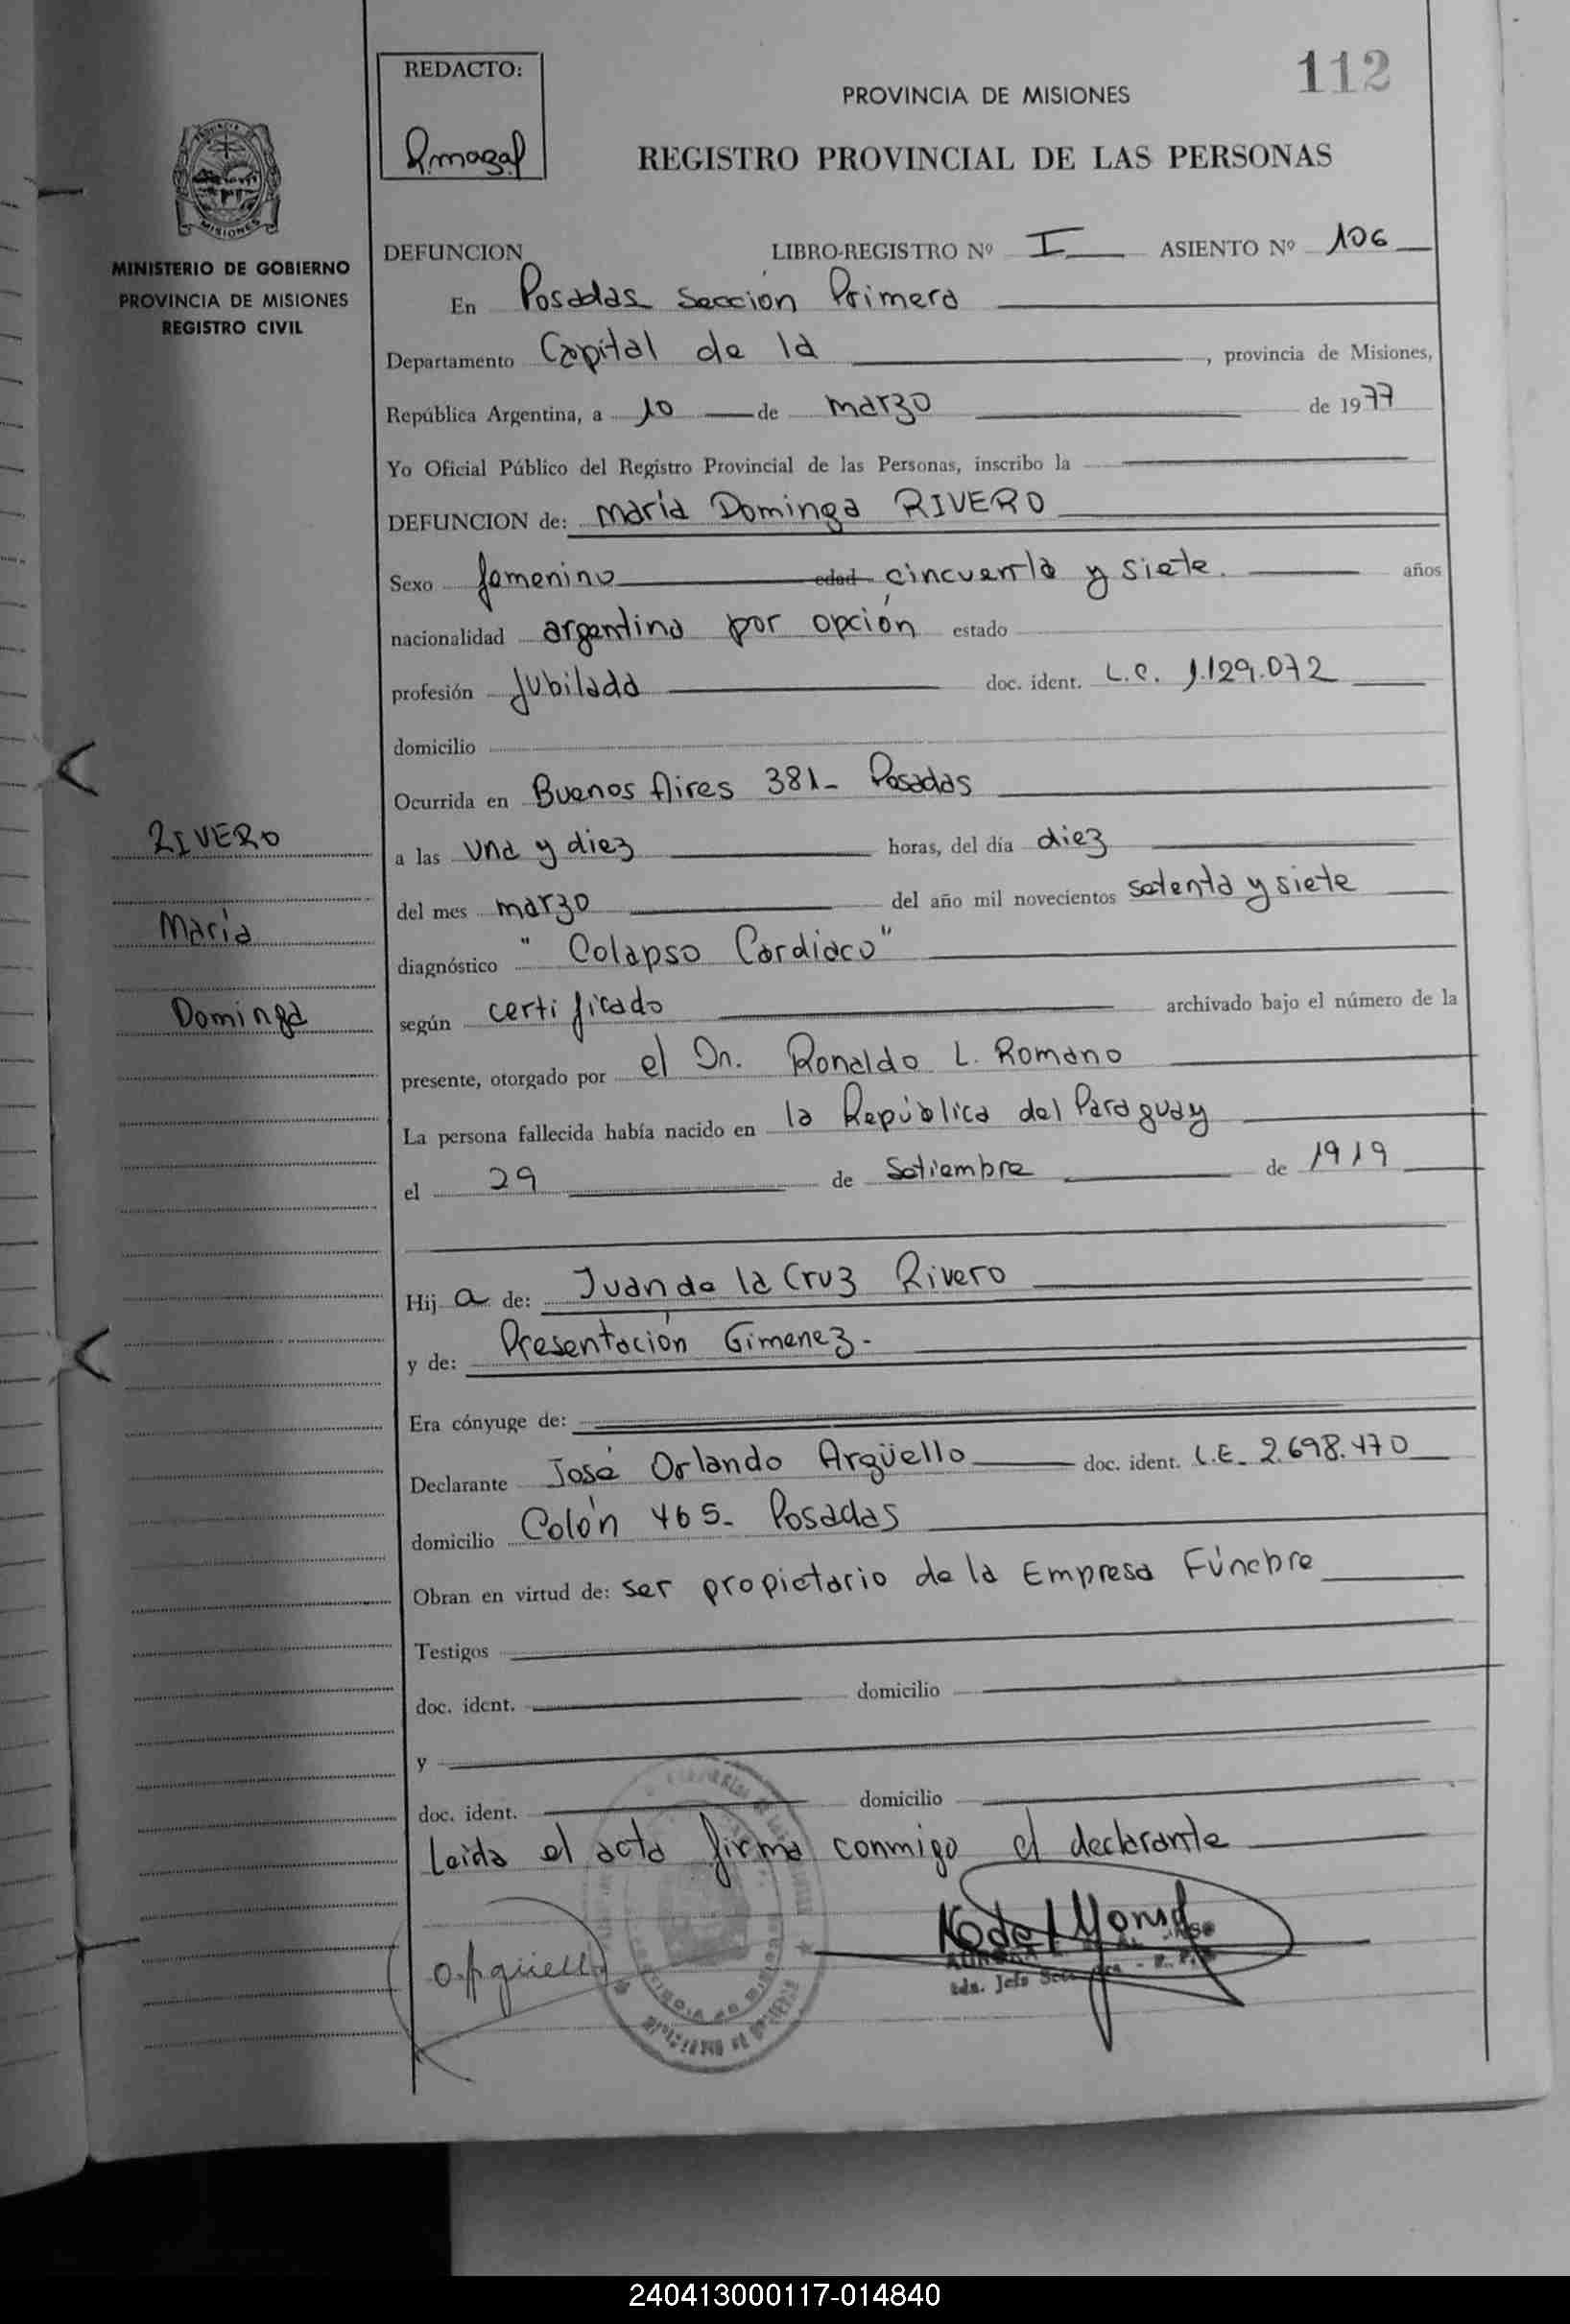 REDACTO:
112
PROVINCIA DE MISIONES
REGISTRO PROVINCIAL DE LAS PERSONAS
MISIONES
MINISTERIO DE GOBIERNO
PROVINCIA DE MISIONES
REGISTRO CIVIL
DEFUNCION LIBRO-REGISTRO Nº I ASIENTO Nº 106
En Posadas Sección Primera
Departamento Capital de la , provincia de Misiones,
República Argentina, a 10 de marzo de 1977
Yo Oficial Público del Registro Provincial de las Personas, inscribo la
DEFUNCION de: María Dominga RIVERO
Sexo femenino edad cincuenta y siete. años
nacionalidad argentina por opción estado
profesión Jubilada doc. ident. L.C. 1.129.072
domicilio
Ocurrida en Buenos Aires 381- Posadas
a las una y diez horas, del día diez
del mes marzo del año mil novecientos setenta y siete
diagnóstico "Colapso Cardiaco"
según certificado archivado bajo el número de la
presente, otorgado por el Dr. Ronaldo L. Romano
La persona fallecida había nacido en la República del Paraguay
el 29 de Setiembre de 1919
Hij a de: Juan de la Cruz Rivero
y de: Presentación Gimenez.-
Era cónyuge de:
Declarante José Orlando Argüello doc. ident. L.E. 2.698.470
domicilio Colón 465- Posadas
Obran en virtud de: ser propietario de la Empresa Fúnebre
Testigos
doc. ident. domicilio
y
doc. ident. domicilio
Leida el acta firma conmigo el declarante
RIVERO
María
Dominga
240413000117-014840